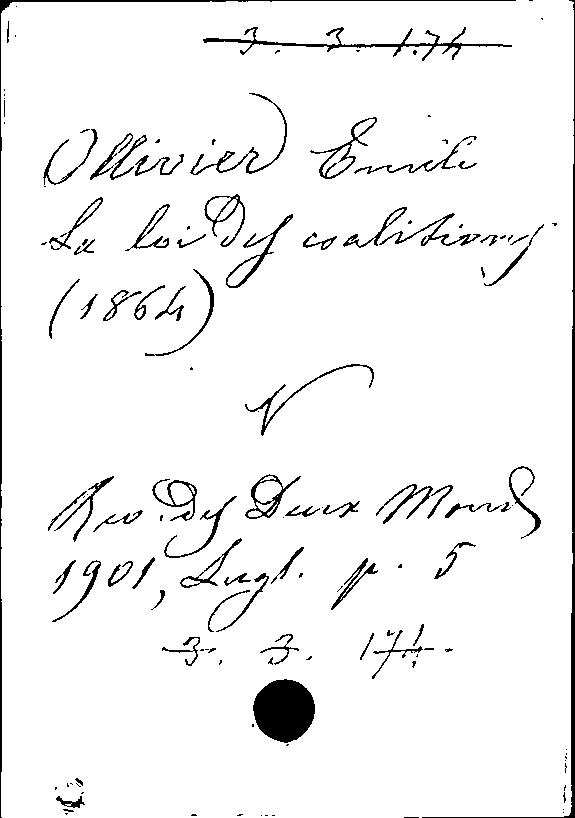 3. 3. 174
Ollivier Emile
La loi des coalitions
(1864)
V
Rev. des Deux Mond
1901, p. 5
3. 3. 174.